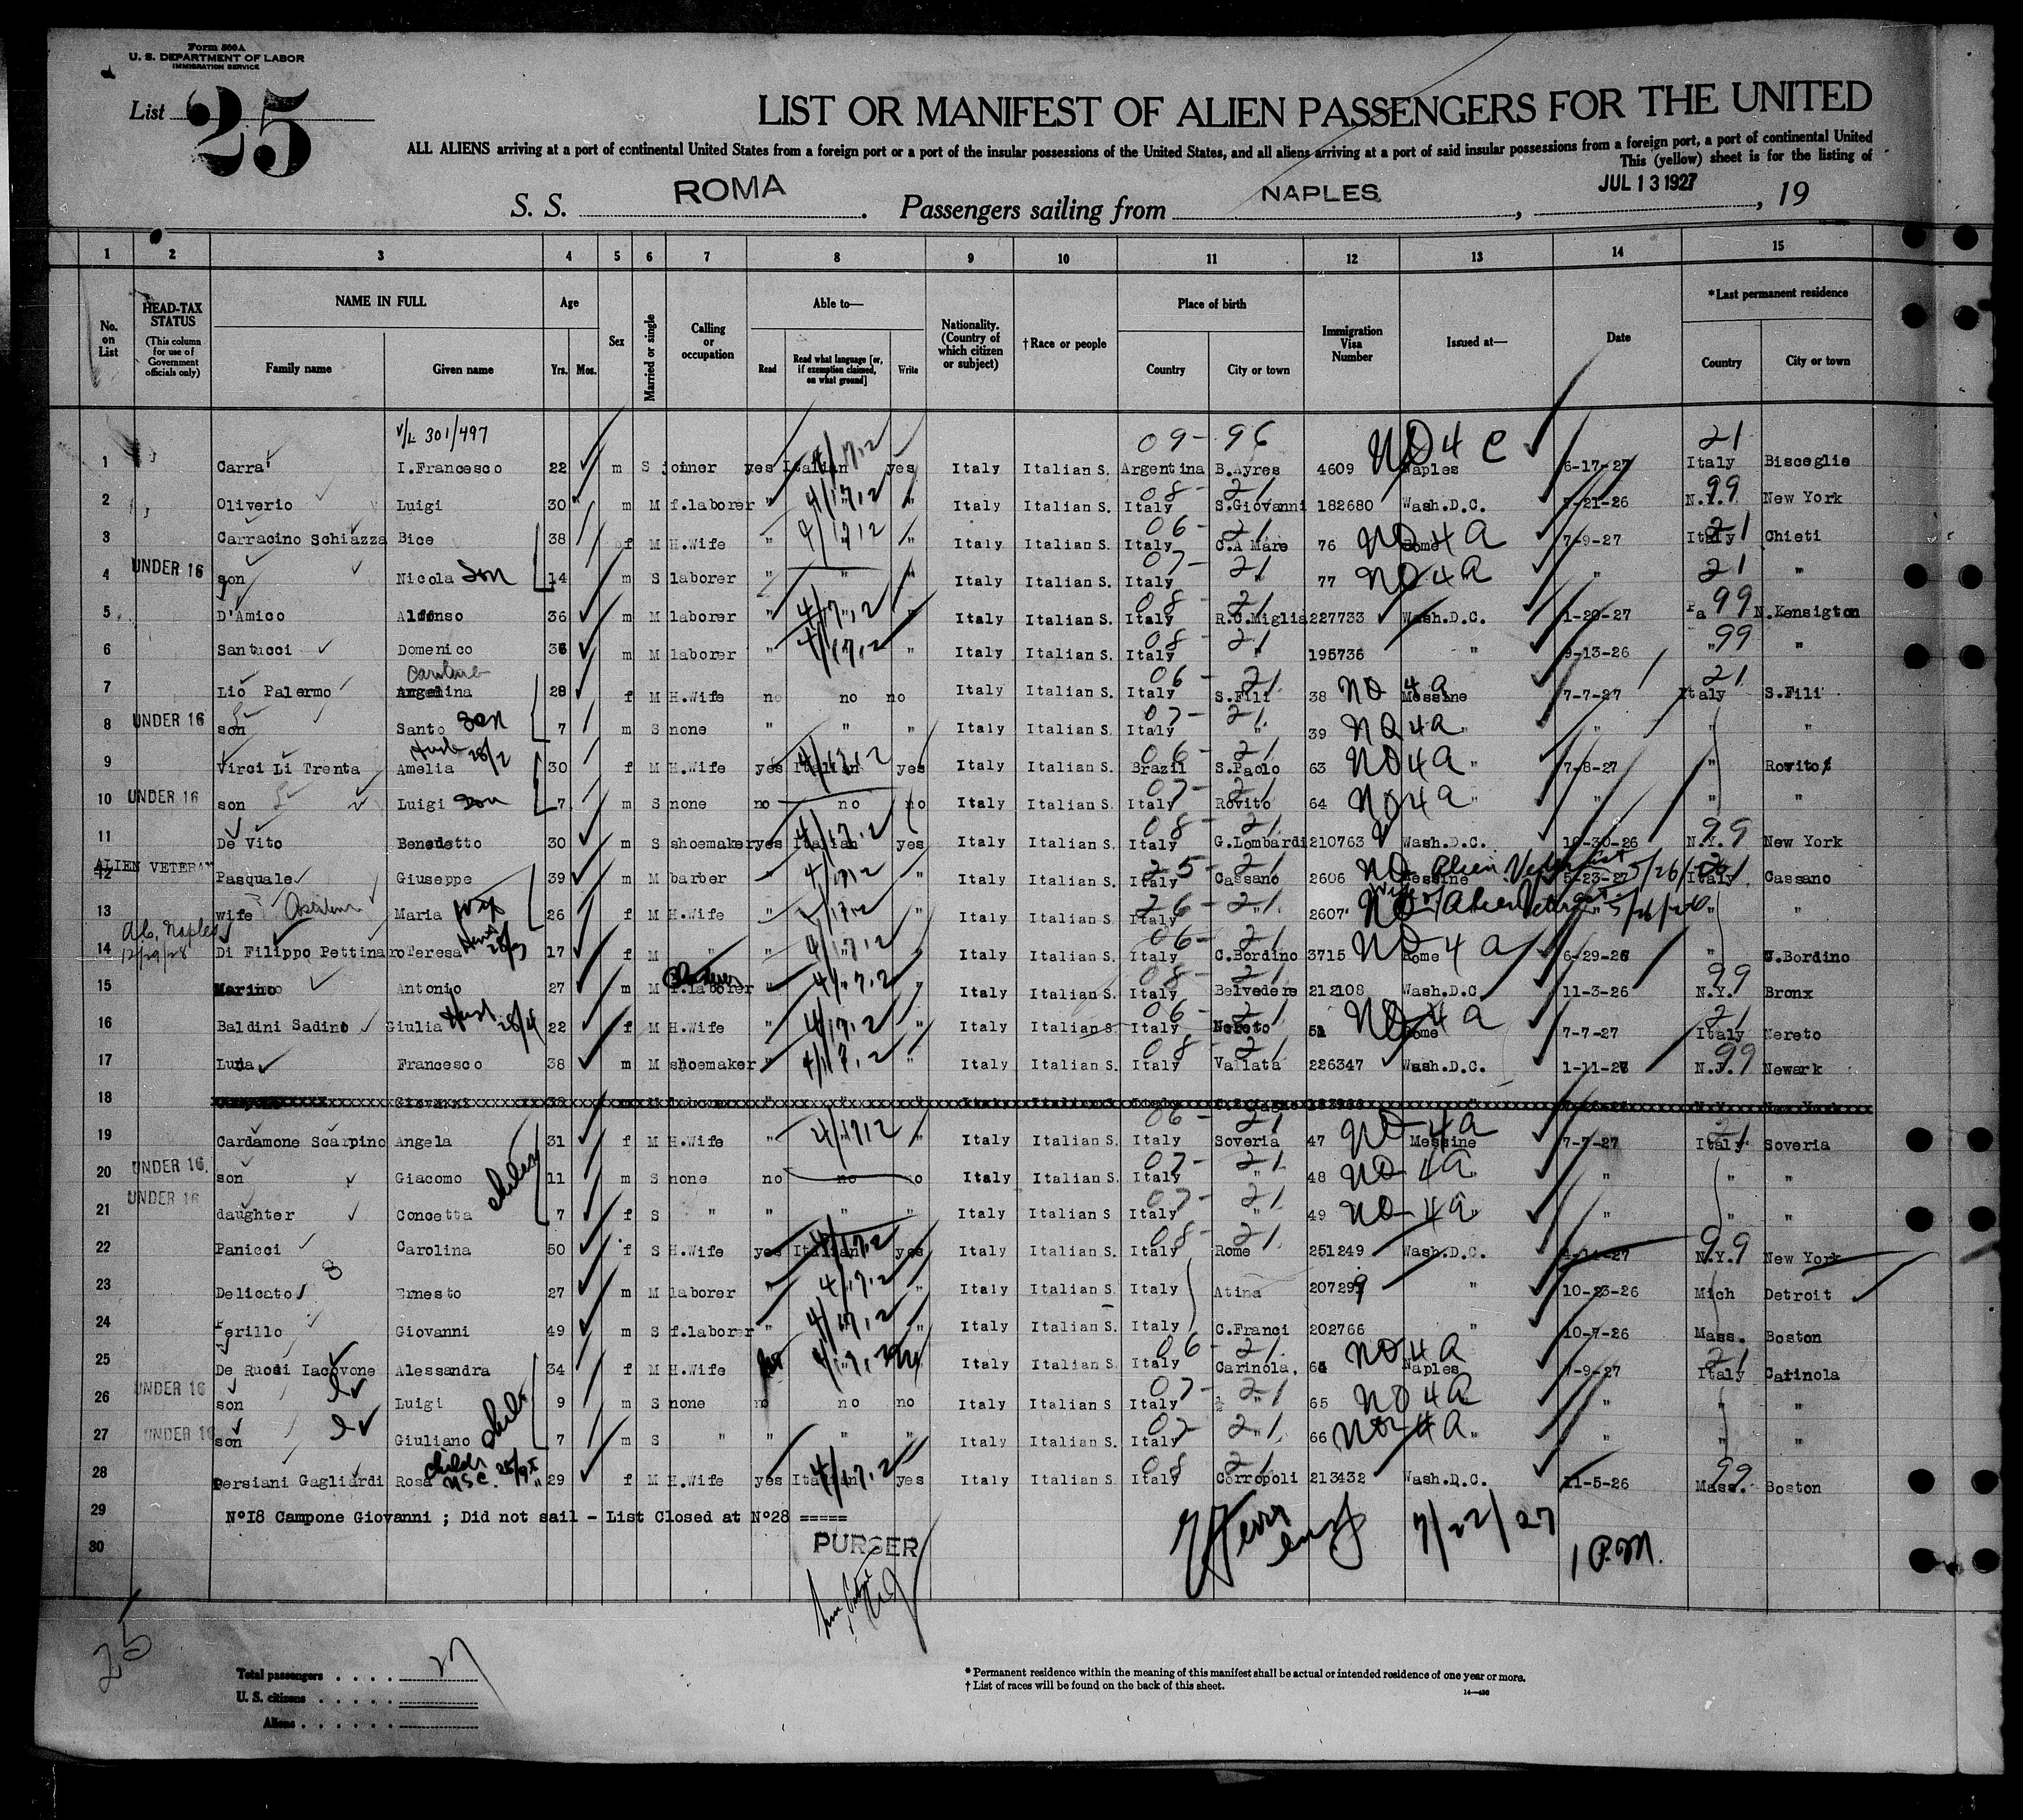 Form 500A
U. S. DEPARTMENT OF LABOR
IMMIGRATION SERVICE
List 25
LIST OR MANIFEST OF ALIEN PASSENGERS FOR THE UNITED
ALL ALIENS arriving at a port of continental United States from a foreign port or a port of the insular possessions of the United States, and all aliens arriving at a port of said insular possessions from a foreign port, a port of continental United
This (yellow) sheet is for the listing of
S. S. ROMA. Passengers sailing from NAPLES, JUL 13 1927, 19
1 2 3 4 5 6 7 8 9 10 11 12 13 14 15
No. on List
HEAD-TAX STATUS (This column for use of Government officials only)
NAME IN FULL Family name Given name
Age Yrs. Mos.
Sex
Married or single
Calling or occupation
Able to— Read Read what language [or, if exemption claimed, on what ground] Write
Nationality. (Country of which citizen or subject)
†Race or people
Place of birth Country City or town
Immigration Visa Number
Issued at—
Date
*Last permanent residence Country City or town
V/L 301/497 09- 96 NO 4 C 21
1 Carra' I.Francesco 22 m S joiner yes Italian yes Italy Italian S. Argentina B.Ayres 4609 Naples 6-17-27 Italy Bisceglie
2 Oliverio Luigi 30 m M f.laborer " 4/17,2 " Italy Italian S. Italy 08- 21 S.Giovanni 182680 Wash.D.C. -21-26 N.Y. 99 New York
3 Carracino Schiazza Bice 38 f M H.Wife " 4/17,2 " Italy Italian S. Italy 06- 21 C.A Mare 76 NO 4a Rome 7-9-27 Italy 21 Chieti
4 UNDER 16 son Nicola son 14 m S laborer " " " Italy Italian S. Italy 07- 21 " 77 NO 4a " Italy 21 "
5 D'Amico Alfonso 36 m M laborer " 4/17,2 " Italy Italian S. Italy 08- 21 R.C.Miglia 227733 Wash.D.C. 1-20-27 Pa 99 N.Kensigton
6 Santucci Domenico 36 m M laborer " 4/17,2 " Italy Italian S. Italy 08- 21 " 195736 " 9-13-26 " 99 "
Caroline
7 Lio Palermo Angelina 28 f M H.Wife no no no Italy Italian S. Italy 06 21 S.Fili 38 NO 4a Messine 7-7-27 Italy 21 S.Fili
8 UNDER 16 son Santo son 7 m S none " " " Italy Italian S. Italy 07- 21 " 39 NO 4a " " " "
9 Virci Li Trenta Amelia 30 f M H.Wife yes Italian yes Italy Italian S. Brazil 06- 21 S.Paolo 63 NO 4a " 7-8-27 " Rovito
10 UNDER 16 son Luigi son 7 m S none no no no Italy Italian S. Italy 07- 21 Rovito 64 NO 4a " " " "
11 De Vito Benedetto 30 m S shoemaker yes Italian yes Italy Italian S. Italy 08- 21 G.Lombardi 210763 Wash.D.C. 10-30-26 N.Y. 99 New York
ALIEN VETERAN
12 Pasquale Giuseppe 39 m M barber " 4/17,2 " Italy Italian S. Italy 25- 21 Cassano 2606 NO Messine Alien Veteran 5/26/26 5-23-27 Italy 21 Cassano
13 wife Maria wife 26 f M H.Wife " " Italy Italian S. Italy 26- 21 " 2607 NO wife of Alien Veteran 5/26/26 " "
Ab. Naples 12/29/28
14 Di Filippo Pettinaro Teresa 17 f M " " 4/17,2 " Italy Italian S. Italy 06- 21 C.Bordino 3715 NO 4a Rome 6-29-26 " C.Bordino
15 Marino Antonio 27 m M f.laborer " 4/17,2 " Italy Italian S. Italy 08- 21 Belvedere 212108 Wash.D.C 11-3-26 N.Y. 99 Bronx
16 Baldini Sadino Giulia Husb 28/4 22 f M H.Wife " 4/17,2 " Italy Italian S. Italy 06- 21 Nereto 52 NO 4a Rome 7-7-27 Italy 21 Nereto
17 Luna Francesco 38 m M shoemaker " 4/17,2 " Italy Italian S. Italy 08- 21 Vallata 226347 Wash.D.C. 1-11-26 N.J. 99 Newark
18 Giovanni
19 Cardamone Scarpino Angela 31 f M H.Wife " 4/17,2 " Italy Italian S. Italy 06- 21 Soveria 47 NO 4a Messine 7-7-27 Italy 21 Soveria
20 UNDER 16. son Giacomo 11 m S none no no no Italy Italian S. Italy 07- 21 " 48 NO 4a " " " "
21 UNDER 16 daughter Concetta 7 f S " " " " Italy Italian S Italy 07- 21 " 49 NO 4a " " " "
22 Panicci Carolina 50 f S H.Wife yes Italian yes Italy Italian S. Italy 08- 21 Rome 251249 Wash.D.C. 4-14-27 N.Y. 99 New York
23 Delicato Ernesto 27 m M laborer " 4/17,2 " Italy Italian S. Italy Atina 207299 " 10-23-26 Mich Detroit
24 Ferillo Giovanni 49 m S f.laborer " 4/17,2 " Italy Italian S. Italy C.Franci 202766 " 10-7-26 Mass. Boston
25 De Rucci Iacovone Alessandra 34 f M H.Wife Italy Italian S. Italy 06- 21 Carinola. 64 NO 4a Naples 7-9-27 Italy 21 Carinola
26 UNDER 16 son Luigi 9 m S none no no no Italy Italian S. Italy 07- 21 " 65 NO 4a " " " "
27 UNDER 16 son Giuliano 7 m S " " " " Italy Italian S. Italy 07- 21 " 66 NO 4a " " " "
28 Persiani Gagliardi Rosa 29 f M H.Wife yes Italian yes Italy Italian S. Italy 08 21 Corropoli 213432 Wash.D.C. 11-5-26 Mass. 99 Boston
29 N°18 Campone Giovanni ; Did not sail - List Closed at N°28 =====
30 PURSER 7/22/27 1 P.M.
25
Total passengers . . . . 27
U. S. citizens . . . . .
Aliens . . . . . .
* Permanent residence within the meaning of this manifest shall be actual or intended residence of one year or more.
† List of races will be found on the back of this sheet.
14—436